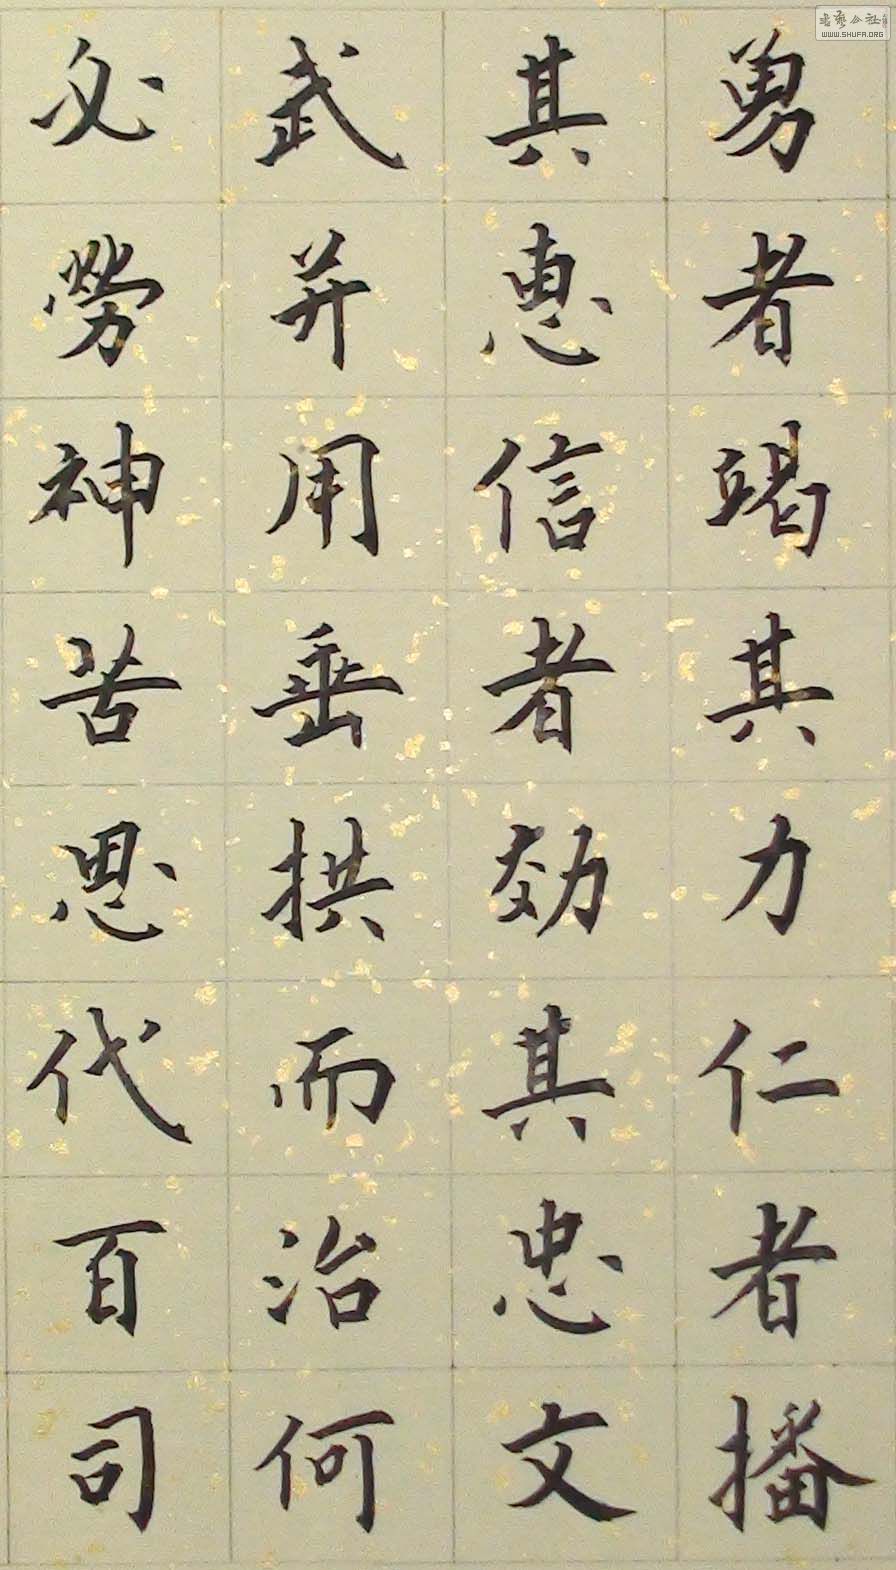 勇者竭其力仁者播
其惠信者効其忠文
武并用垂拱而治何
必勞神苦思代百司
WWW.SHUFA.ORG